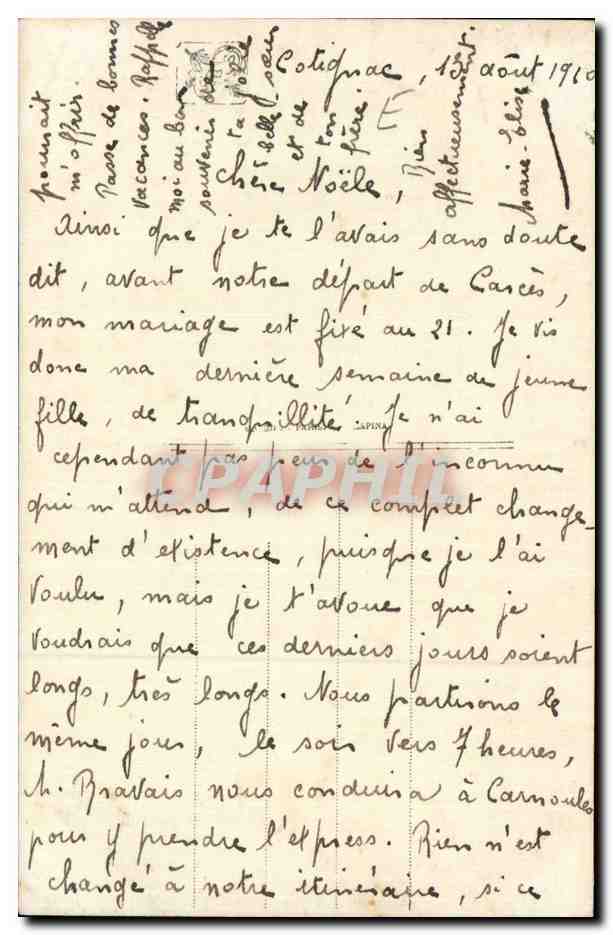 Cotignac, 15 août 191
Chère Noële,
Ainsi que je te l'avais sans doute
dit, avant notre départ de Carcès,
mon mariage est fixé au 21. Je vis
donc ma dernière semaine de jeune
fille, de tranquillité. Je n'ai
cependant pas peur de l'inconnu
qui m'attend, de ce complet change-
ment d'existence, puisque je l'ai
voulu, mais je t'avoue que je
voudrais que ces derniers jours soient
longs, très longs. Nous partirons le
même jour, le soir vers 7 heures,
M. Bravais nous conduira à Carnoules
pour y prendre l'express. Rien n'est
changé à notre itinéraire, si ce
pourrait
m'offrir.
Passe de bonnes
vacances. Rappelle
moi au bon
souvenir de
ta jolie
belle-sœur
et de
ton
frère.
Bien
affectueusement.
Marie-Elise
CPAPHIL